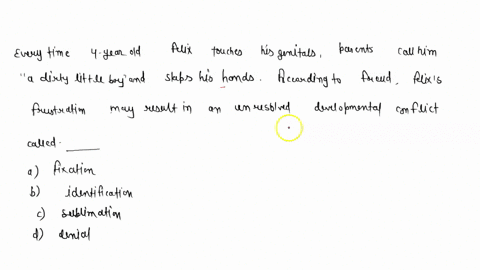 Every time 4-year old Felix touches his genitals, parents call him
"a dirty little boy" and slaps his hands. According to freud, felix's
frustration may result in an unresolved developmental conflict
called. ____
a) fixation
b) identification
c) sublimation
d) denial